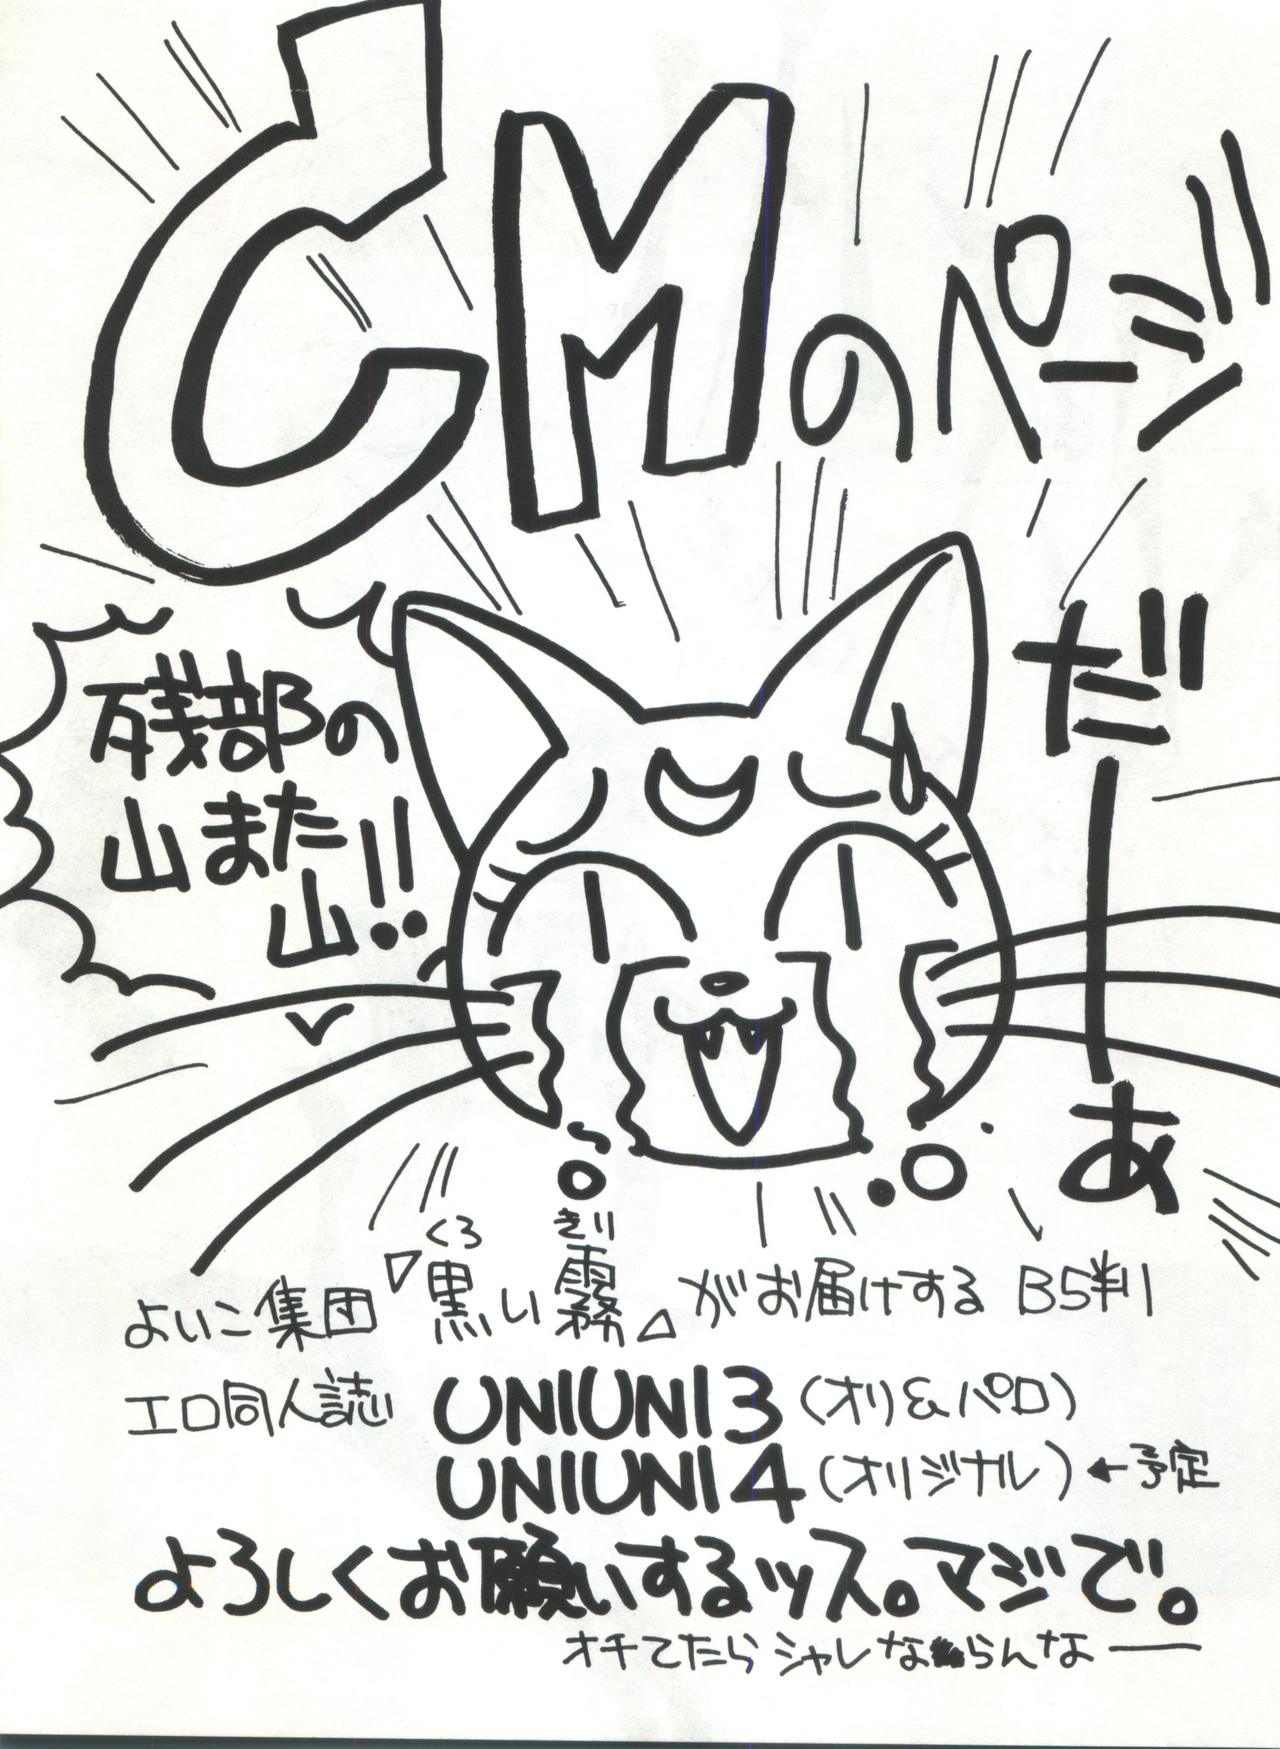 CMのページ
だーあ
残部の
山また
山!!
よいこ集団『黒い霧』がお届けする B5判
くろ きり
エロ同人誌 UNIUNI 3 (オリ&パロ)
UNIUNI 4 (オリジナル) ←予定
よろしくお願いするッス。マジで。
オチてたらシャレならんなー